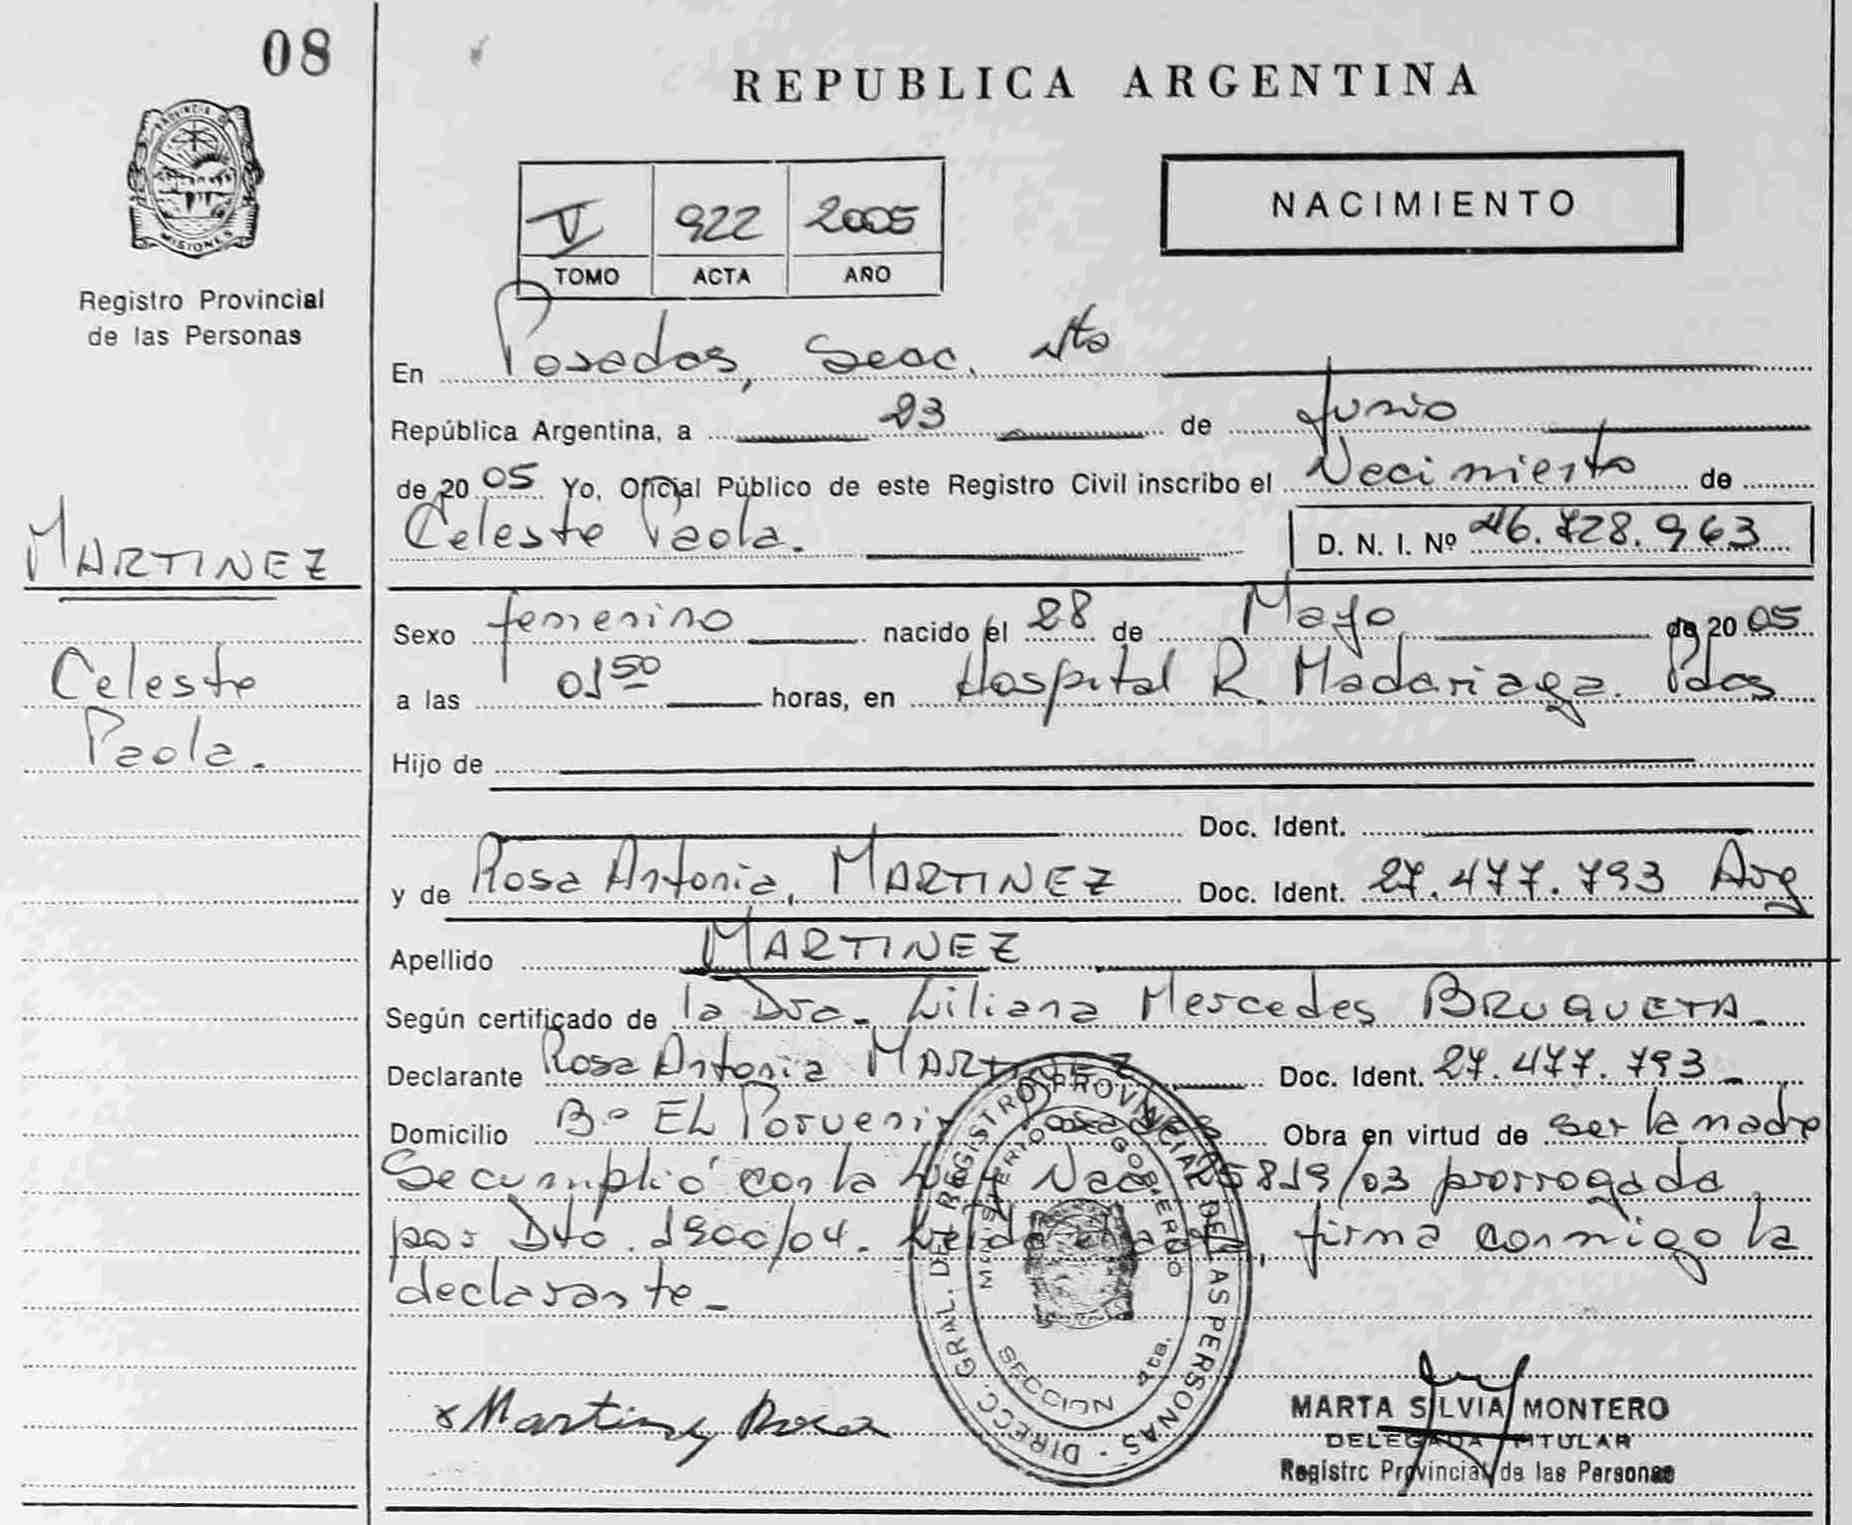 08
REPUBLICA ARGENTINA
PROVINCIA DE
MISIONES
Registro Provincial
de las Personas
V 922 2005
TOMO ACTA AÑO
NACIMIENTO
En Posadas, Secc. 4ta
República Argentina, a 23 de Junio
de 2005 Yo, Oficial Público de este Registro Civil inscribo el Nacimiento de
Celeste Paola. D. N. I. Nº 46.728.963
MARTINEZ
Celeste
Paola.
Sexo femenino nacido el 28 de Mayo de 2005
a las 01 50 horas, en Hospital R. Madariaga. Pdas
Hijo de
Doc. Ident.
y de Rosa Antonia, MARTINEZ Doc. Ident. 27.477.793 Arg
Apellido MARTINEZ
Según certificado de la Dra. Liliana Mercedes BRUQUETA.
Declarante Rosa Antonia MARTINEZ Doc. Ident. 27.477.793
Domicilio Bº EL Porvenir Posadas Obra en virtud de ser la madre
Se cumplió con la Ley Nac. 25819/03 prorrogada
por Dto. 1900/04. Leida el acta, firma conmigo la
declarante
x Martinez Rosa
DIRECC. GRAL. DEL REGISTRO PROVINCIAL DE LAS PERSONAS
MINISTERIO DE GOBIERNO
SECCION 4ta.
MARTA SILVIA MONTERO
DELEGADA TITULAR
Registro Provincial de las Personas